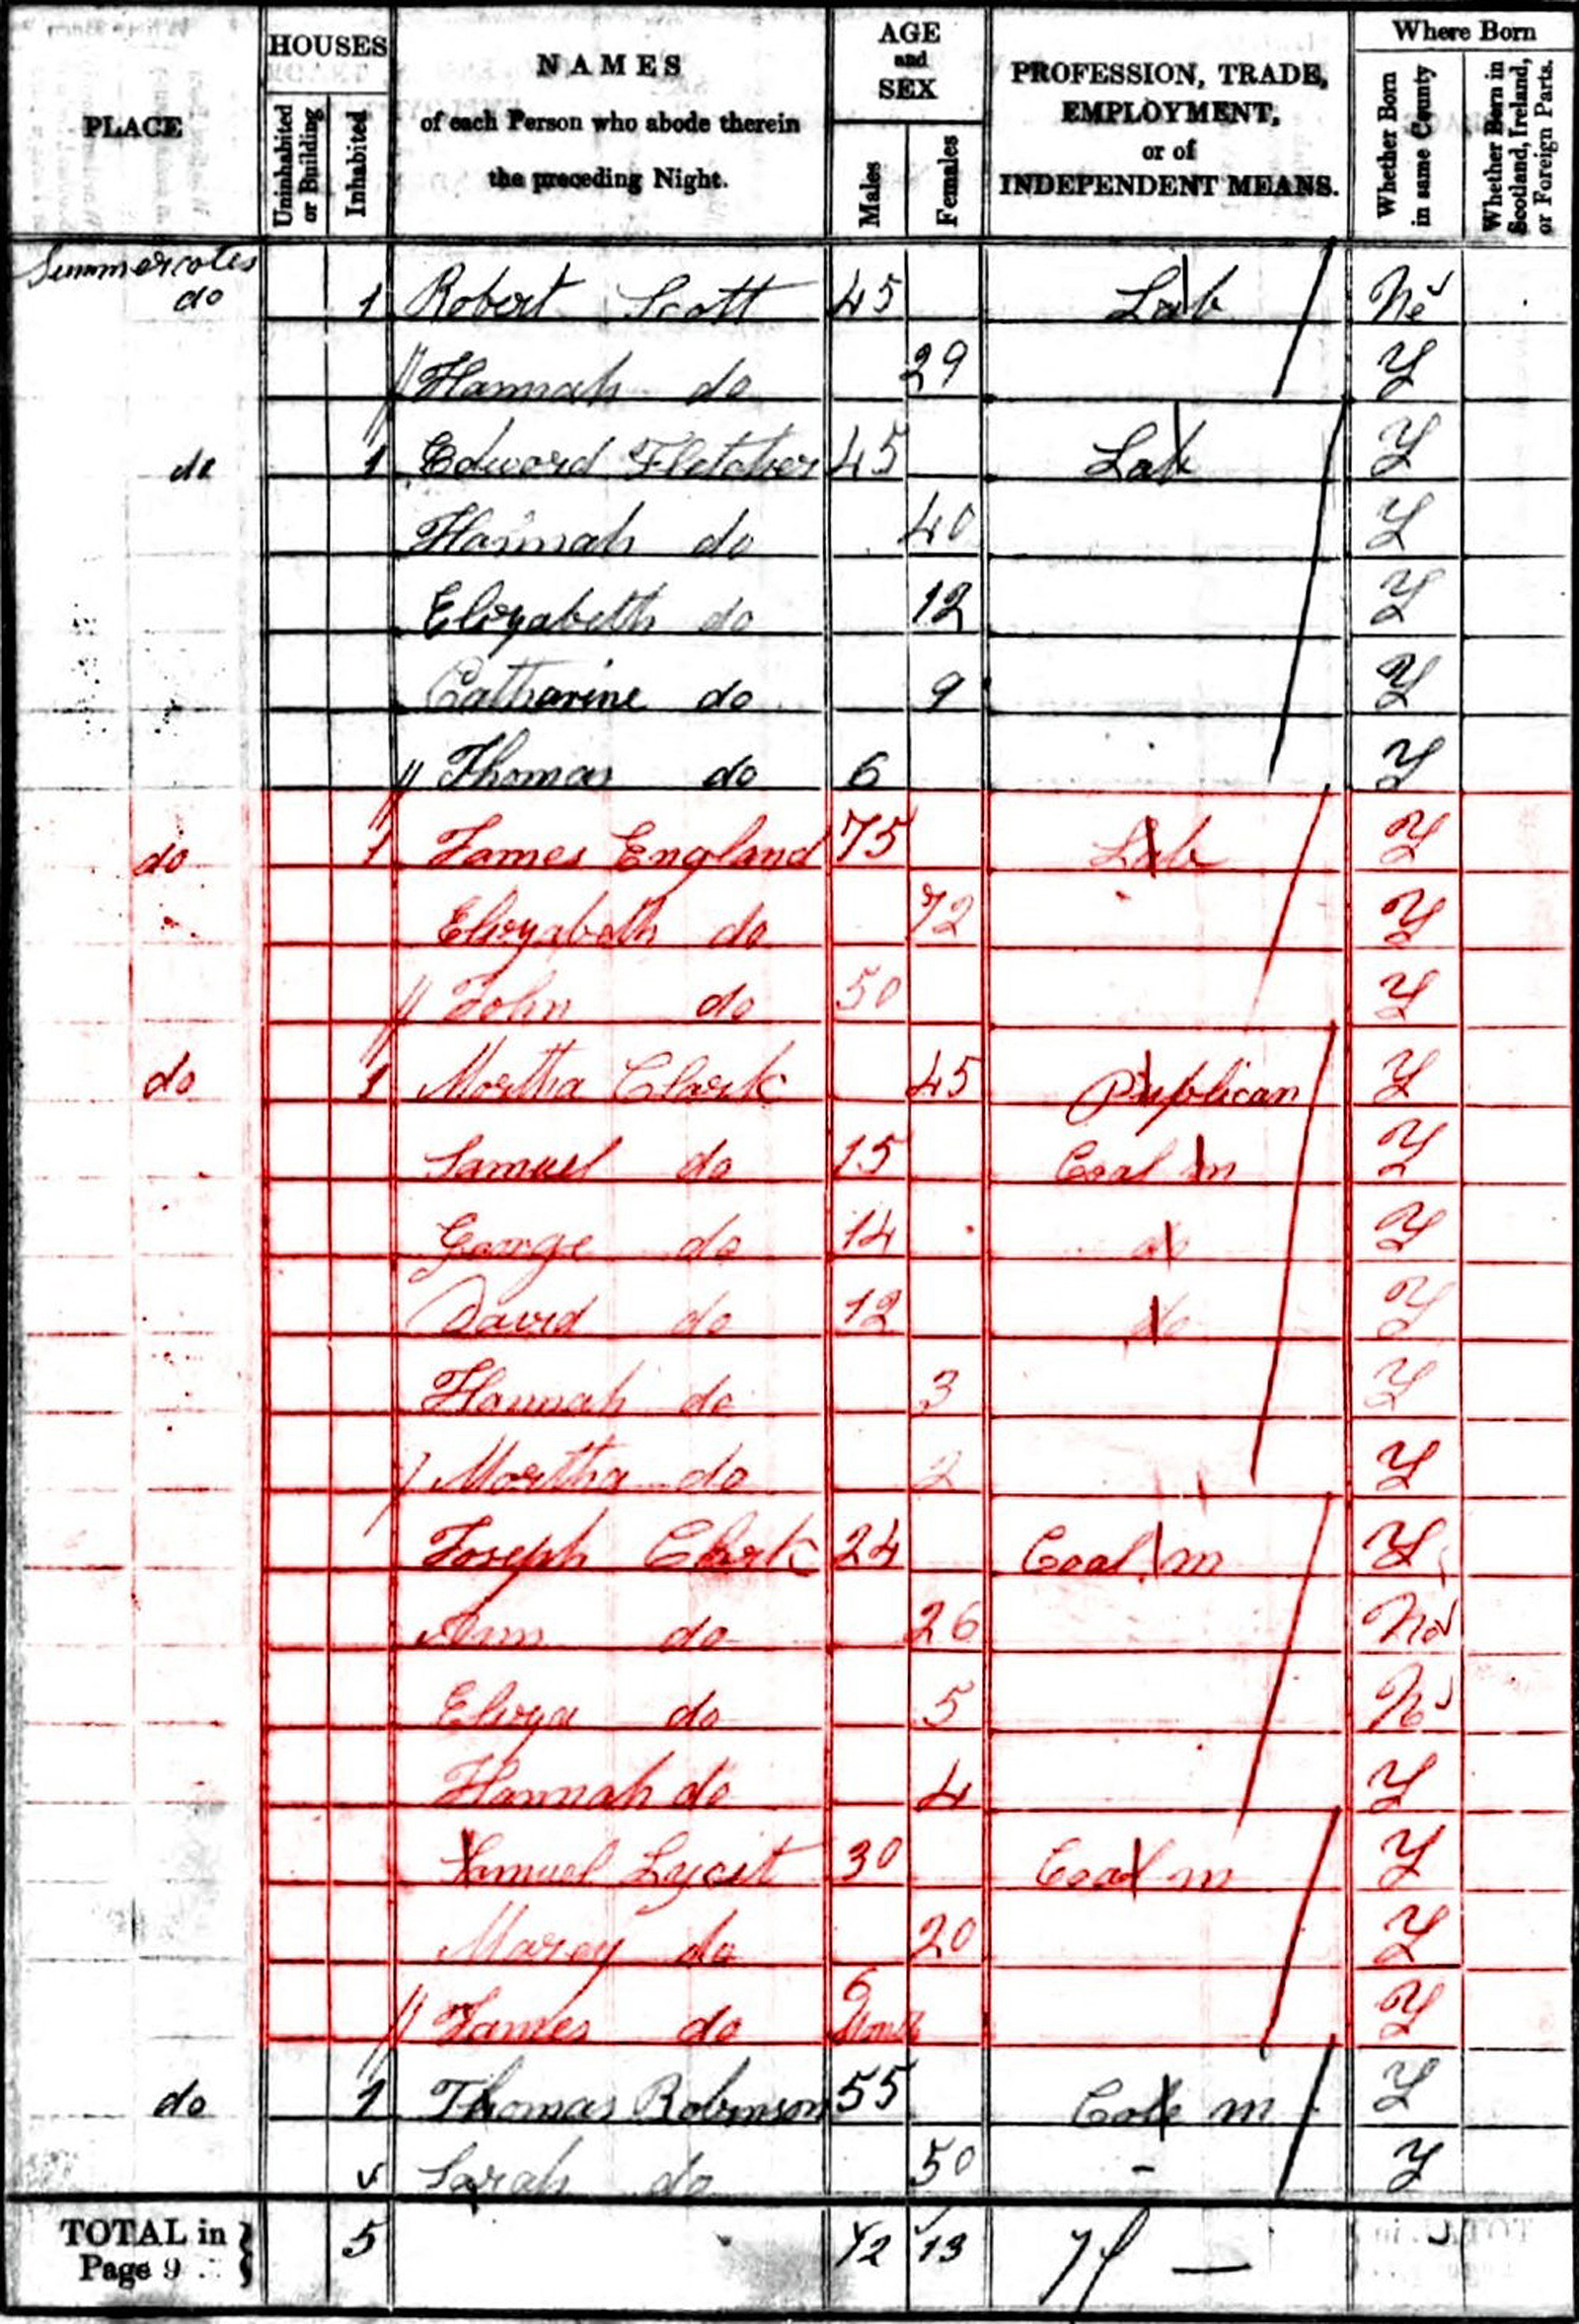 PLACE
HOUSES
Uninhabited or Building
Inhabited
NAMES
of each Person who abode therein
the preceding Night.
AGE
and
SEX
Males
Females
PROFESSION, TRADE,
EMPLOYMENT,
or of
INDEPENDENT MEANS.
Where Born
Whether Born in same County
Whether Born in Scotland, Ireland, or Foreign Parts.
Summercotes
do 1 Robert Scott 45 Lab No
Hannah do 29 Y
do 1 Edward Fletcher 45 Lab Y
Hannah do 40 Y
Elizabeth do 12 Y
Catharine do 9 Y
Thomas do 6 Y
do 1 James England 75 Lab Y
Elizabeth do 72 Y
John do 50 Y
do 1 Martha Clark 45 Publican Y
Samuel do 15 Coal m Y
George do 14 do Y
David do 12 do Y
Hannah do 3 Y
Martha do 2 Y
Joseph Clark 24 Coal m Y
Ann do 26 No
Eliza do 5 No
Hannah do 4 Y
Samuel Lycit 30 Coal m Y
Marey do 20 Y
James do Y
do 1 Thomas Robinson 55 Cole m Y
Sarah do 50 - Y
TOTAL in
Page 9
5 12 13